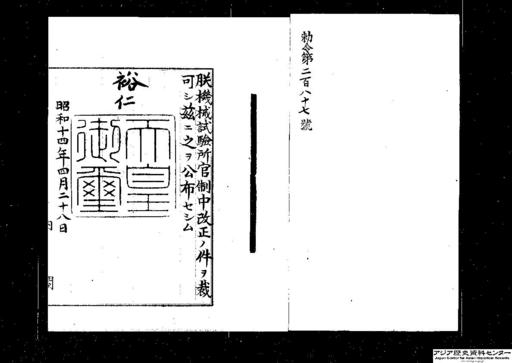 勅令第二百八十七號
朕機械試驗所官制中改正ノ件ヲ裁
可シ茲ニ之ヲ公布セシム
裕仁
天皇御璽
昭和十四年四月二十八日
内閣
アジア歴史資料センター
Japan Center for Asian Historical Records